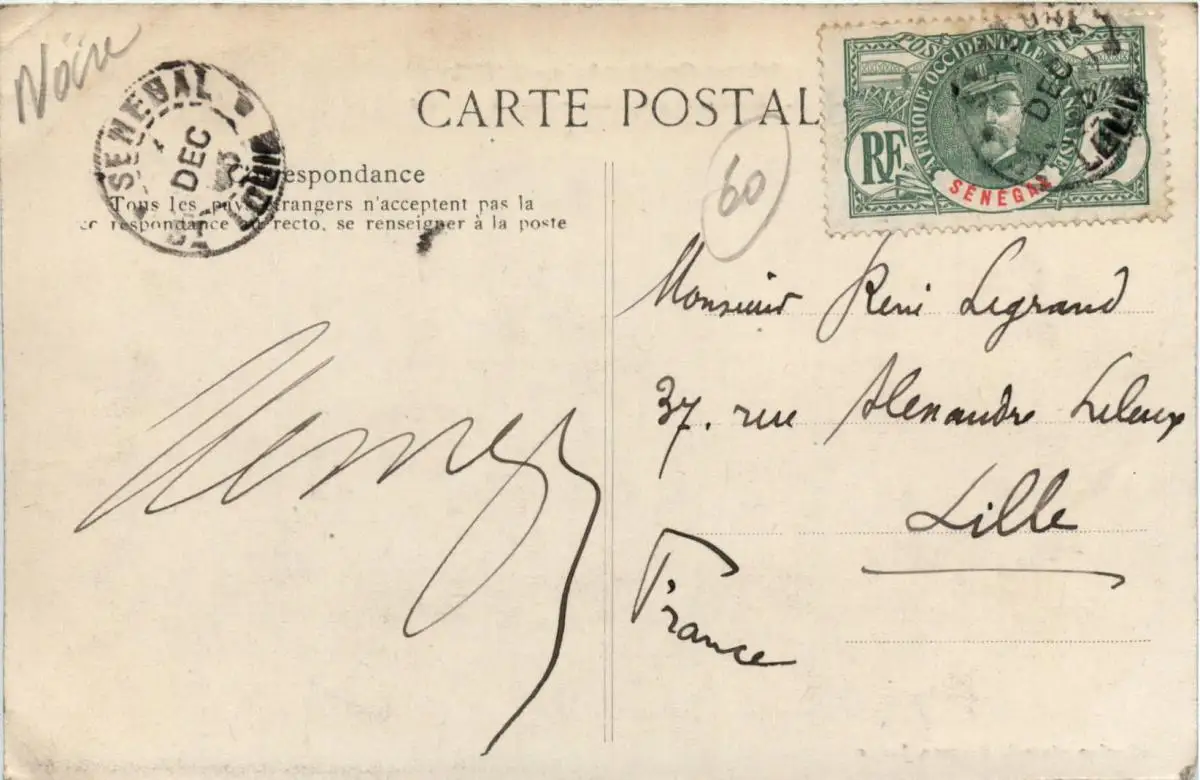 Noire
SENEGAL
DEC
LOUIS
CARTE POSTALE
Correspondance
Tous les pays étrangers n'acceptent pas la
correspondance au recto, se renseigner à la poste
60
POSTES
AFRIQUE OCCIDENTALE FRANÇAISE
RF
5
SÉNÉGAL
DEC
Monsieur René Legrand
37. rue Alexandre Leleux
Lille
France